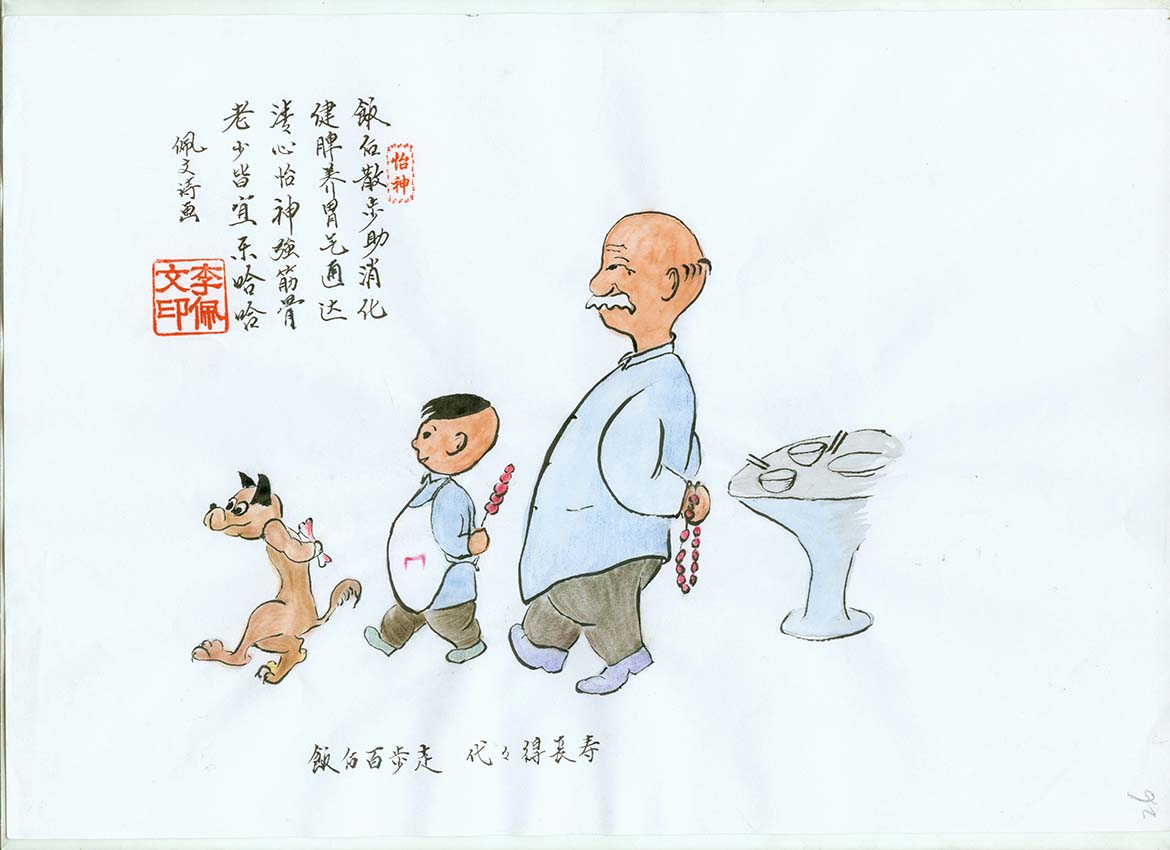 飯后散步助消化
健脾养胃气通达
清心怡神強筋骨
老少皆宜乐哈哈
佩文诗画
怡神
李佩文印
飯后百步走 代々得長寿
26